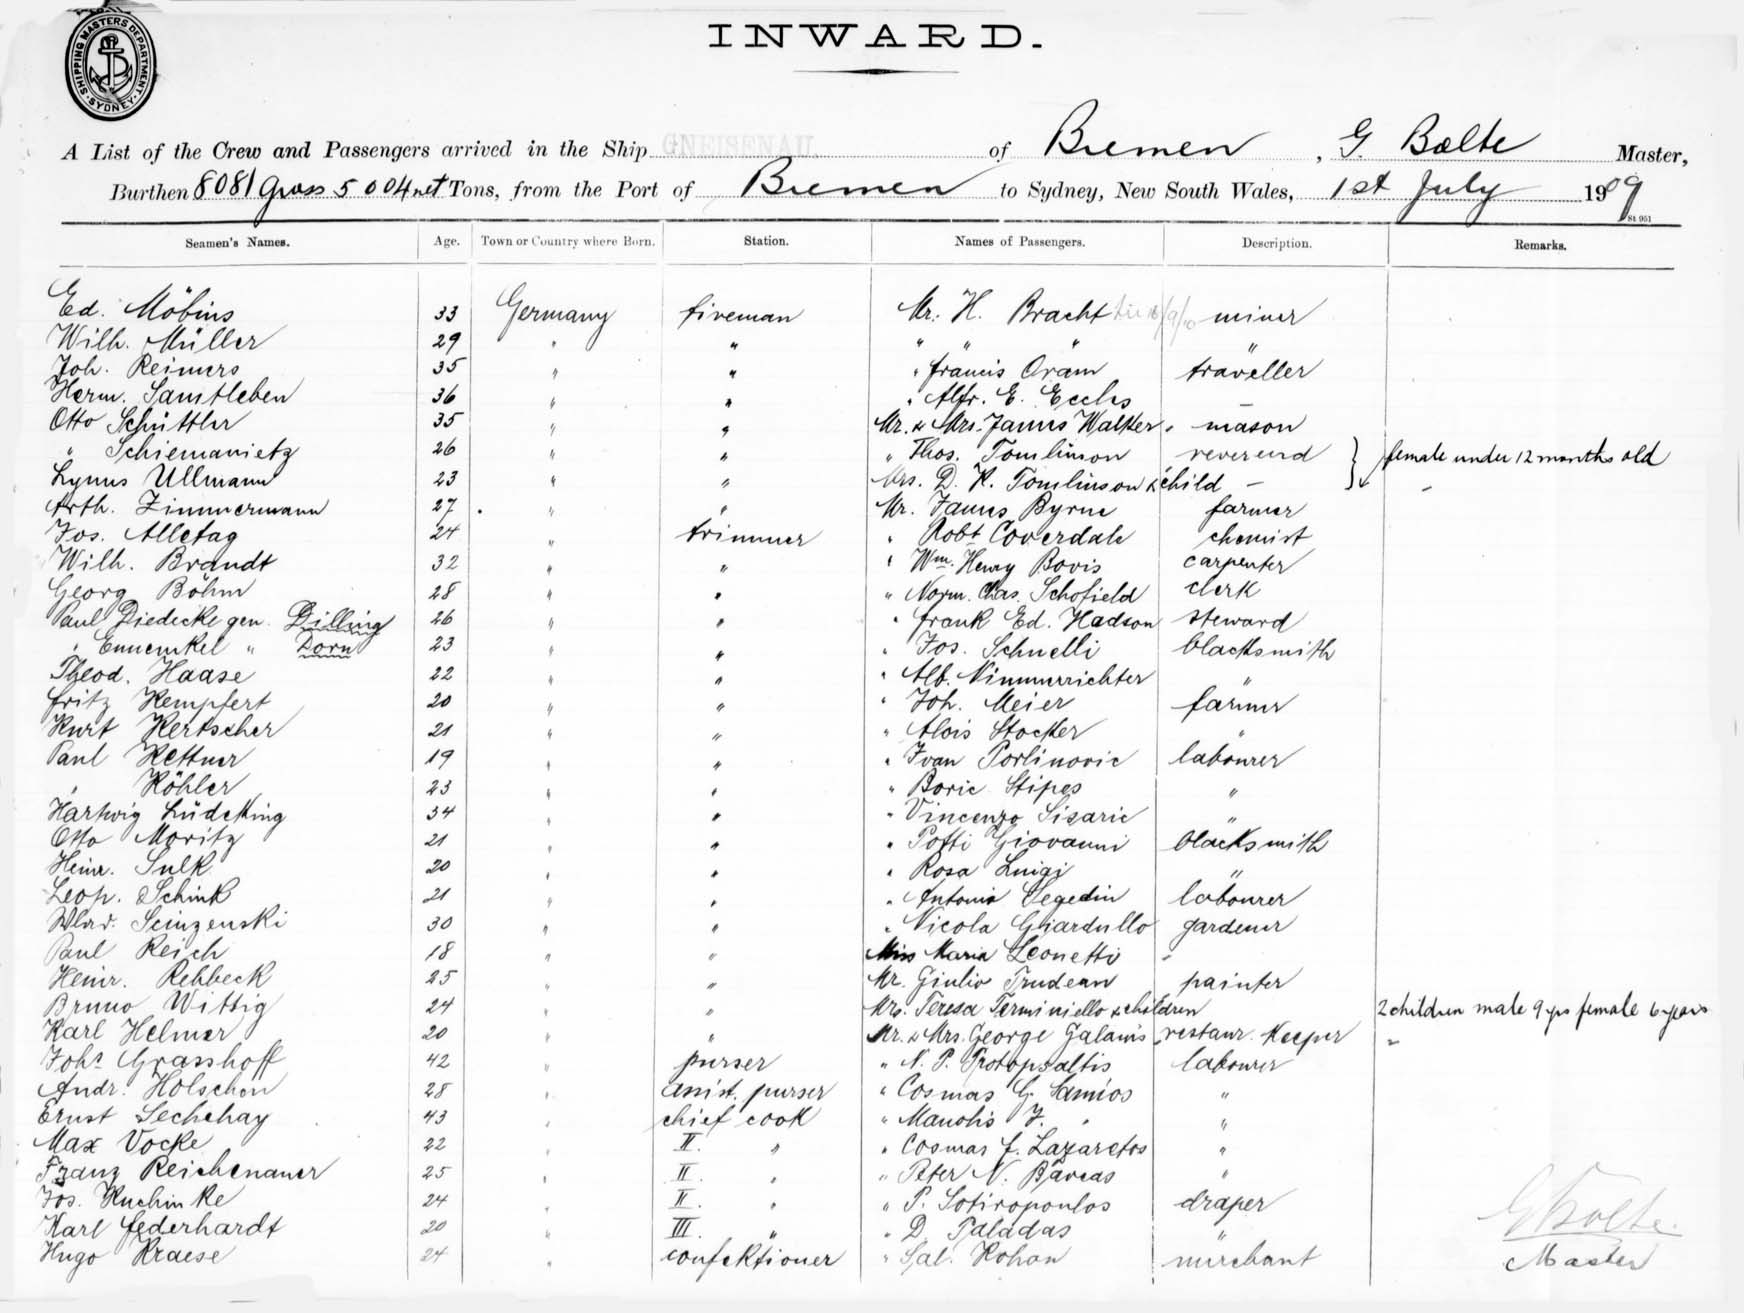 SHIPPING MASTERS DEPARTMENT · SYDNEY ·
INWARD.
A List of the Crew and Passengers arrived in the Ship GNEISENAU. of Bremen, G. Bolte Master,
Burthen 8081 Gross 5004 net Tons, from the Port of Bremen to Sydney, New South Wales, 1st July 1909
St 951
Seamen's Names. Age. Town or Country where Born. Station. Names of Passengers. Description. Remarks.
Ed. Möbius 33 Germany fireman Mr. H. Bracht miner
Wilh. Müller 29 " " " "
Joh. Reimers 35 " " " Francis Oram traveller
Herm. Samtleben 36 " " " Alfr. E. Eccles —
Otto Schüttler 35 " " Mr. & Mrs. James Walker " mason
" Schiemanietz 26 " " " Thos. Tomlinson reverend } female under 12 months old
Lynus Ullmann 23 " " Mrs. D. K. Tomlinson & child —
Arth. Zimmermann 27 " " Mr. James Byrne farmer
Jos. Alletag 24 " trimmer " Robt Coverdale chemist
Wilh. Brandt 32 " " " Wm. Henry Bovis carpenter
Georg Böhm 28 " " " Norm. Chas. Schofield clerk
Paul Diedecke gen. Dilling 26 " " " Frank Ed. Hadson steward
" Ennenkel " Dorn 23 " " " Jos. Schnelli blacksmith
Theod. Haase 22 " " " Alb. Nimmerrichter "
Fritz Kempfert 20 " " " Joh. Meier farmer
Kurt Kertscher 21 " " " Alois Stocker
Paul Kettner 19 " " " Ivan Porlinovic labourer
" Köhler 23 " " " Boric Stipes "
Hartwig Lüdeking 34 " " " Vincenzo Sisaric "
Otto Moritz 21 " " " Potti Giovanni blacksmith
Heinr. Sulk 20 " " " Rosa Luigi "
Leop. Schink 21 " " " Antonio Segedin labourer
Wlad. Scinzenski 30 " " " Nicola Giardullo gardener
Paul Reich 18 " " Miss Maria Leonetti "
Heinr. Rehbeck 25 " " Mr. Giulio Trudean painter
Bruno Wittig 24 " " Mrs. Teresa Terminiello & children 2 children male 9 yrs female 6 years
Karl Helmer 20 " " Mr. & Mrs. George Galanis restaur. Keeper "
Johs Grasshoff 42 " purser " N. P. Protopsaltis labourer
Andr. Holschen 28 " assist. purser " Cosmas G. Samios "
Ernst Sechehay 43 " chief cook " Manolis J. " "
Max Vocke 22 " II. " " Cosmas J. Lazaretos "
Franz Reichenauer 25 " II. " " Peter N. Bareas "
Jos. Kuchinke 24 " II. " " P. Sotiropoulos draper
Karl Federhardt 20 " III. " " D. Paladas "
Hugo Kraese 24 " confektioner " Sal. Kohan merchant
G Bolte.
Master